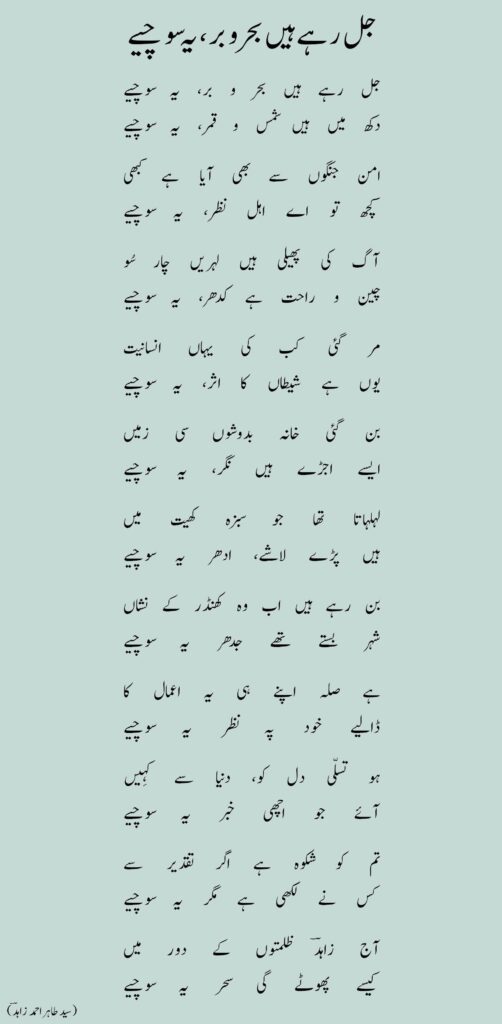 جل رہے ہیں بحر و بر، یہ سوچیے
جل رہے ہیں بحر و بر، یہ سوچیے
دکھ میں ہیں شمس و قمر، یہ سوچیے
امن جنگوں سے بھی آیا ہے کبھی
کچھ تو اے اہل نظر، یہ سوچیے
آگ کی پھیلی ہیں لہریں چار سُو
چین و راحت ہے کدھر، یہ سوچیے
مر گئی کب کی یہاں انسانیت
یوں ہے شیطاں کا اثر، یہ سوچیے
بن گئی خانہ بدوشوں سی زمیں
ایسے اجڑے ہیں نگر، یہ سوچیے
لہلہاتا تھا جو سبزہ کھیت میں
ہیں پڑے لاشے، ادھر یہ سوچیے
بن رہے ہیں اب وہ کھنڈر کے نشاں
شہر بستے تھے جدھر یہ سوچیے
ہے صلہ اپنے ہی یہ اعمال کا
ڈالیے خود پہ نظر یہ سوچیے
ہو تسلّی دل کو، دنیا سے کہِیں
آئے جو اچھی خبر یہ سوچیے
تم کو شکوہ ہے اگر تقدیر سے
کس نے لکھی ہے مگر یہ سوچیے
آج زاہدؔ ظلمتوں کے دور میں
کیسے پھوٹے گی سحر یہ سوچیے
(سید طاہر احمد زاہدؔ)